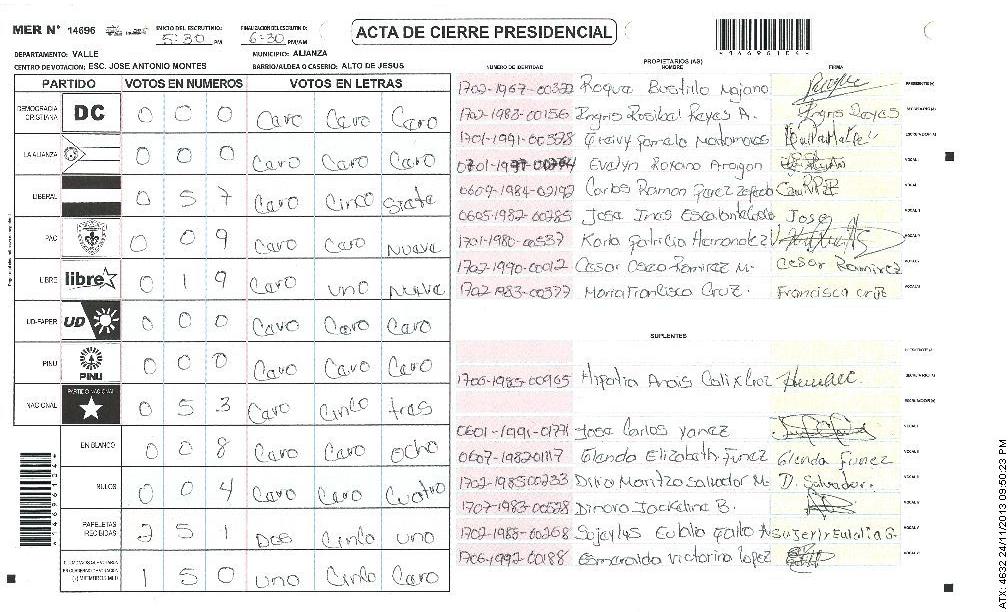 MER N° 14696 INICIO DEL ESCRUTINIO: 5:30 PM FINALIZACION ESCRUTINIO: 6:30 PM/AM
ACTA DE CIERRE PRESIDENCIAL
DEPARTAMENTO: VALLE MUNICIPIO: ALIANZA
CENTRO DE VOTACION: ESC. JOSE ANTONIO MONTES BARRIO/ALDEA O CASERIO: ALTO DE JESUS
PARTIDO VOTOS EN NUMEROS VOTOS EN LETRAS
DEMOCRACIA CRISTIANA DC 0 0 0 Cero Cero Cero
LA ALIANZA 0 0 0 Cero Cero Cero
LIBERAL 0 5 7 Cero Cinco Siete
PAC 0 0 9 Cero Cero Nueve
LIBRE libre 0 1 9 Cero uno Nueve
UD-FAPER UD 0 0 0 Cero Cero Cero
PINU PINU 0 0 0 Cero Cero Cero
NACIONAL PARTIDO NACIONAL 0 5 3 Cero Cinco tres
EN BLANCO 0 0 8 Cero Cero ocho
NULOS 0 0 4 Cero Cero Cuatro
PAPELETAS RECIBIDAS 2 5 1 Dos Cinco uno
1 5 0 uno Cinco Cero
NUMERO DE IDENTIDAD PROPIETARIOS (AS) NOMBRE FIRMA
Roque Bustillo Majano
1702-1983-00156 Ingris Rosibel Reyes A. Ingris Reyes
1701-1991-00328
Evelyn Roxana Aragon
0609-1984-02192 Carlos Ramon
0605-1982-00285 Jose Ines Jose
1701-1980-00537 Karla Patricia Hernandez
1702-1990-00012 Cesar Ramirez M. Cesar Ramirez
1702-1983-00377 Maria Francisca Cruz. Francisca Cruz
SUPLENTES
1706-1985-00965 Hipolia Anais Calix Cruz
0601-1991-01771 Jose Carlos Yanez
0607-1982-01117 Glenda Elizabeth Funez Glenda Funez
1702-1985-00233 Maritza Salvador M. D. Salvador.
1707-1983-00528 Dinora Jackeline B.
1702-1988-00268 Eulalia
1706-1992-00188 Esmeralda Victorina Lopez
ATX: 4632 24/11/2013 09:50:23 PM